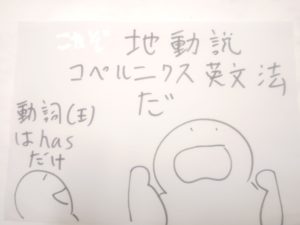 これぞ 地動説
コペルニクス英文法
だ
動詞(王)
はhas
だけ